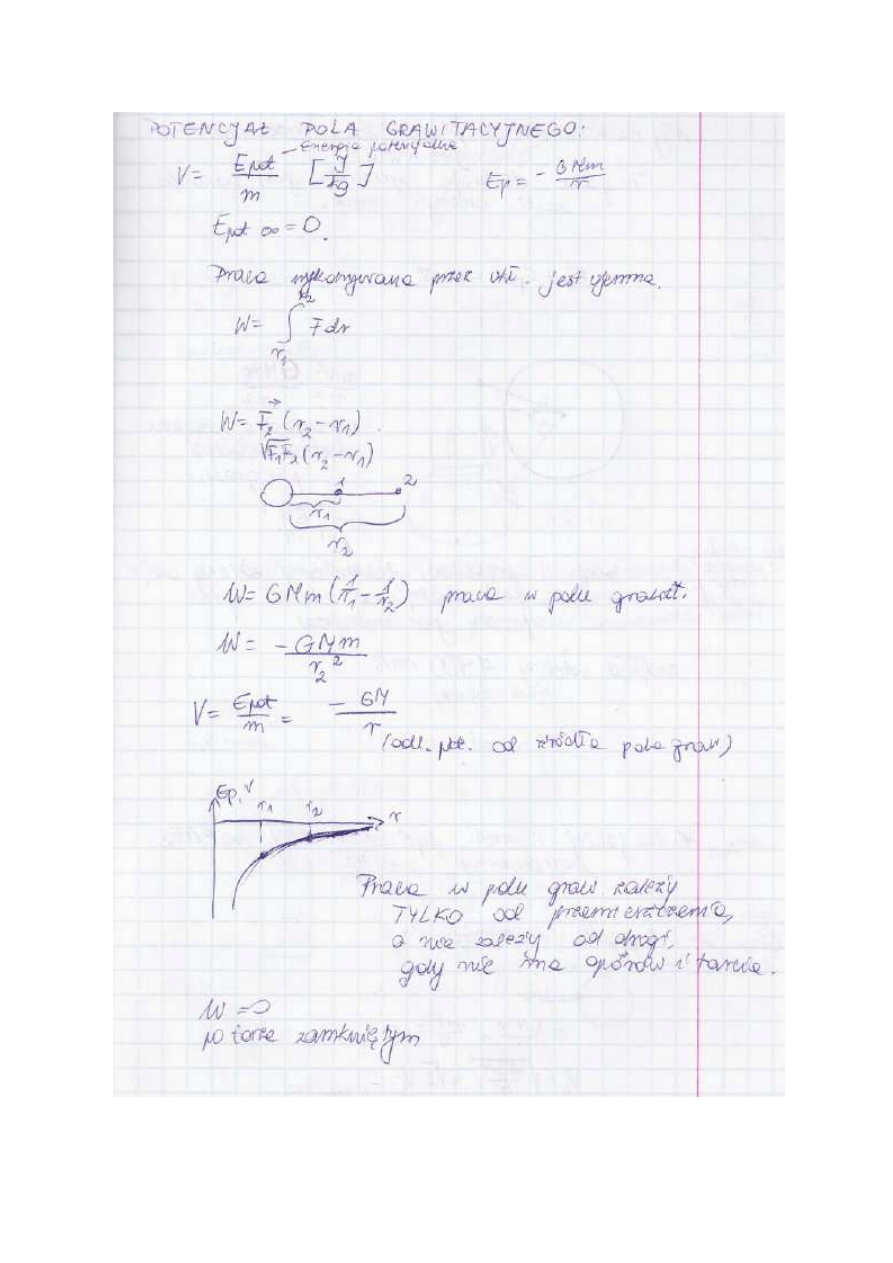 POTENCJAŁ POLA GRAWITACYJNEGO:
V = Epot/m [J/kg] energia potencjalna Ep = - GMm/r
Epot ∞ = 0.
Praca wykonywana przez ukł. jest ujemna.
W = ∫ F dr
r2
r1
W = F2 (r2 - r1).
√F1F2 (r2 - r1)
1 2
r1
r2
W = GMm (1/r1 - 1/r2) praca w polu grawit.
W = -GMm/r2²
V = Epot/m = - GM/r
(odl. pkt. od źródła pola graw)
Ep, V r1 r2 r
Praca w polu graw zależy
TYLKO od przemieszczenia,
a nie zależy od drogi,
gdy nie ma oporów i tarcia.
W = 0
po torze zamkniętym